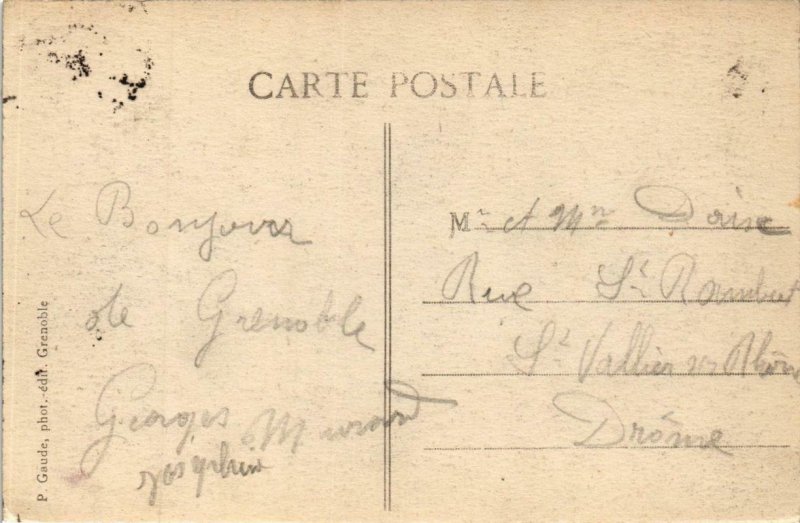 CARTE POSTALE
Le Bonjour
de Grenoble
Georges
Josephine
Mr et Mme
Rue St Rambert
St Vallier sur Rhône
Drôme
P. Gaude, phot.-édit. Grenoble